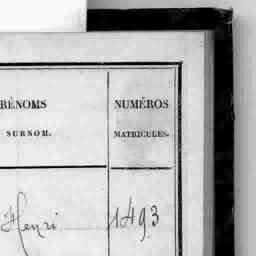 RÉNOMS
SURNOM.
NUMÉROS
MATRICULES.
Henri 1493